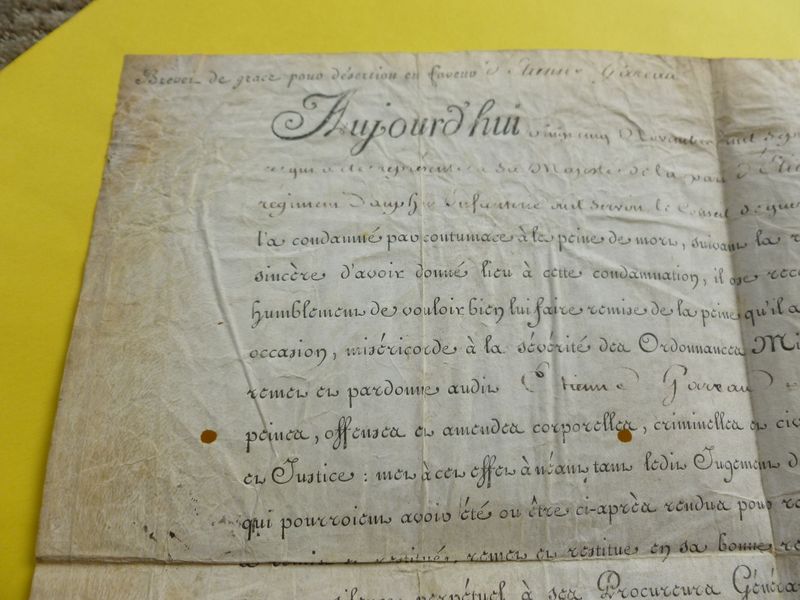 Brevet de grace pour désertion en faveur d'Etienne Gareau
Aujourd'hui vingt cinq Novembre mil sep
ce qui a été représenté à Sa Majesté de la part d'Etie
régiment Dauphin Infanterie où il servoit le Conseil de gue
l'a condamné par contumace à la peine de mort, suivant la r
sincère d'avoir donné lieu à cette condamnation, il ose reco
humblement de vouloir bien lui faire remise de la peine qu'il a
occasion, miséricorde à la sévérité des Ordonnances Mi
remet et pardonne audit Etienne Gareau
peines, offenses et amendes corporelles, criminelles et civ
et Justice : met à cet effet à néant tant ledit Jugement d
qui pourroient avoir été ou être ci-après rendus pour
remet et restitue en sa bonne re
silence perpétuel à ses Procureurs Généra